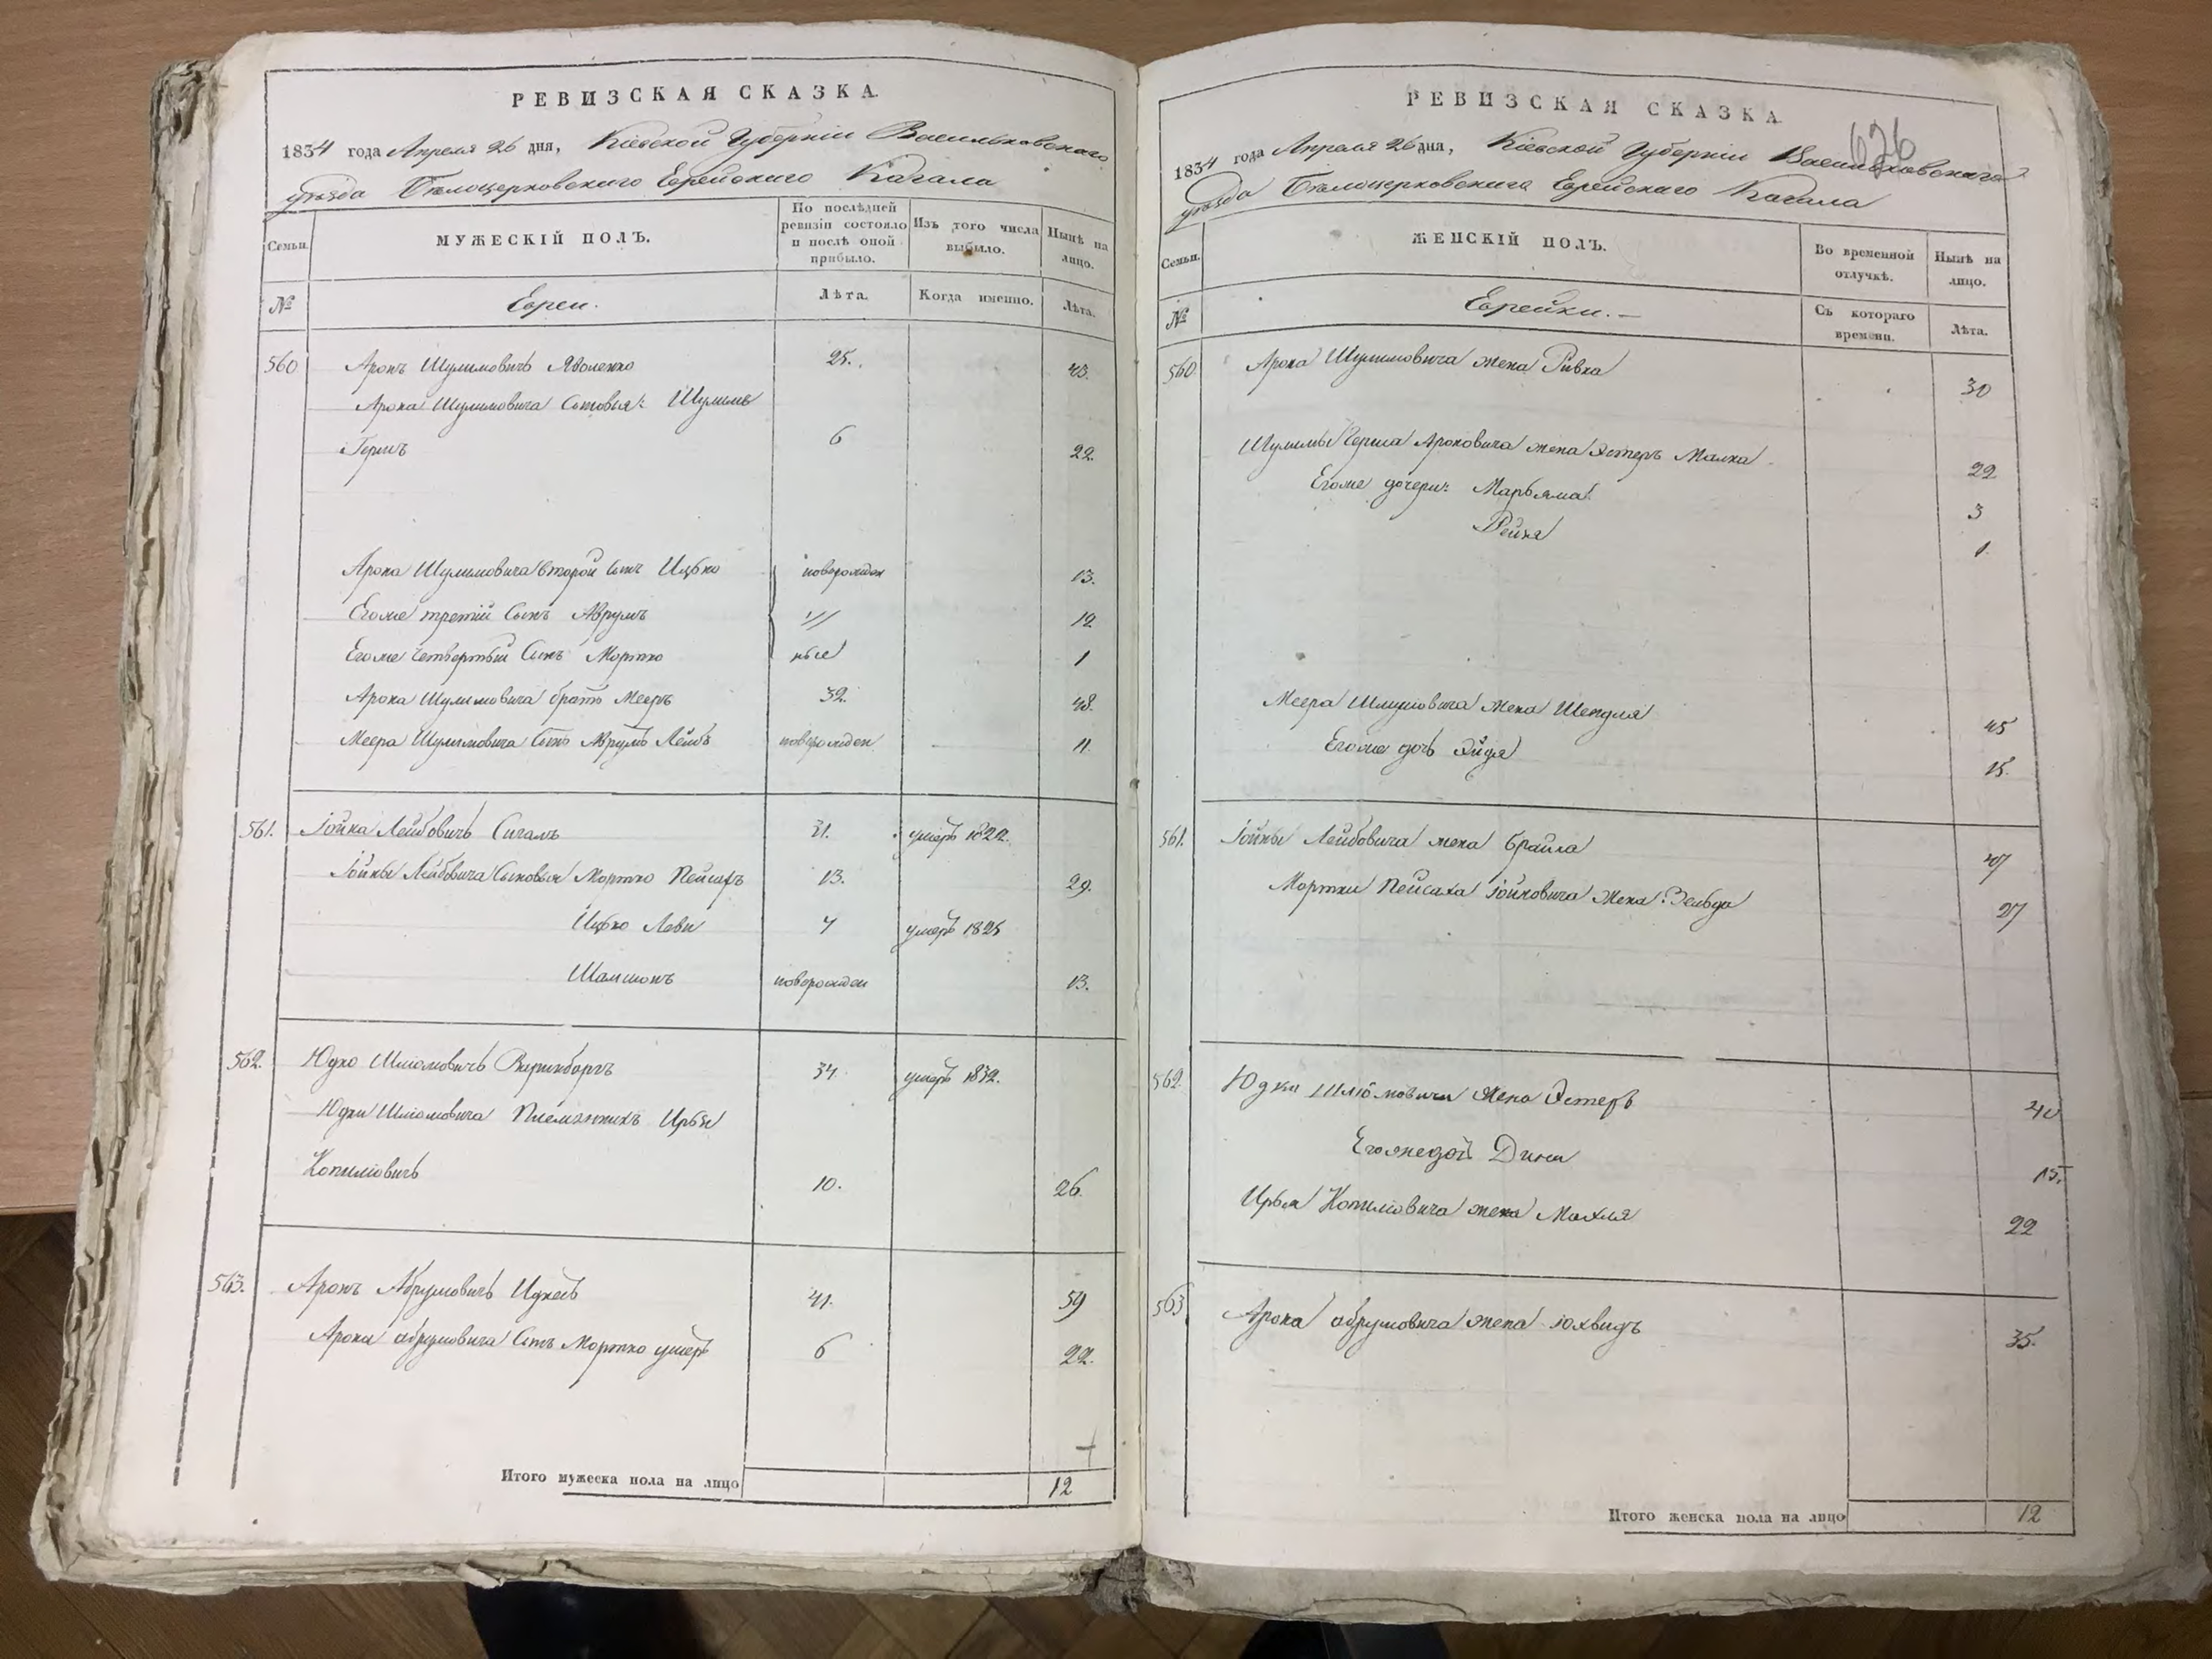 РЕВИЗСКАЯ СКАЗКА.
1834 года Апреля 26 дня, Кіевской Губерніи Васильковскаго
уѣзда Бѣлоцерковскаго Еврейскаго Кагала
Семьи.
МУЖЕСКІЙ ПОЛЪ.
По послѣдней ревизіи состояло и послѣ оной прибыло.
Изъ того числа выбыло.
Нынѣ на лицо.
№
Евреи.
Лѣта.
Когда именно.
Лѣта.
560 Аронъ Шулимовичъ 25. 43.
Арона Шулимовича Сыновья: Шулимъ
Гершъ 6 22.
Арона Шулимовича второй сынъ Ицко новорожден 13.
Егоже третій Сынъ Аврумъ " 12
Егоже четвертый Сынъ Мортко ные 1
Арона Шулимовича братъ Мееръ 32. 48.
Меера Шулимовича Сынъ Аврумъ Лейбъ новорожден 11.
561. Іойна Лейбовичъ Сигалъ 31. умеръ 1822.
Іойны Лейбовича Сыновья Мортко Пейсахъ 13. 29.
Ицко Леви 4 умеръ 1825
Шамшонъ новорожден 13.
562. Юдко Шліомовичъ 34. умеръ 1832.
Юдки Шліомовича Племянникъ
Копиліовичъ 10. 26.
563. Аронъ Абрумовичъ 41. 59
Арона абрумовича Сынъ Мортко умеръ 6 22.
Итого мужеска пола на лицо 12
РЕВИЗСКАЯ СКАЗКА.
626
1834 года Апреля 26 дня, Кіевской Губерніи Васильковскаго
уѣзда Бѣлоцерковскаго Еврейскаго Кагала
Семьи.
ЖЕНСКІЙ ПОЛЪ.
Во временной отлучкѣ.
Нынѣ на лицо.
№
Еврейки.
Съ котораго времени.
Лѣта.
560. Арона Шулимовича жена Ривка 30
Шулимы Герша Ароновича жена Эстеръ Малка 22
Егоже дочери: Марьяма 3
Рейзя 1.
Меера Шлиумовича жена Шендля 45
Егоже дочь Эйдя 15.
561. Іойны Лейбовича жена Брайна 47
Мортки Пейсаха Іойновича жена: Зельда 27
562 Юдки Шліомовича жена Эстеръ 40
Дина 15.
Копиліовича жена Махля 22
563 Арона абрумовича жена юхвидъ 35.
Итого женска пола на лицо 12